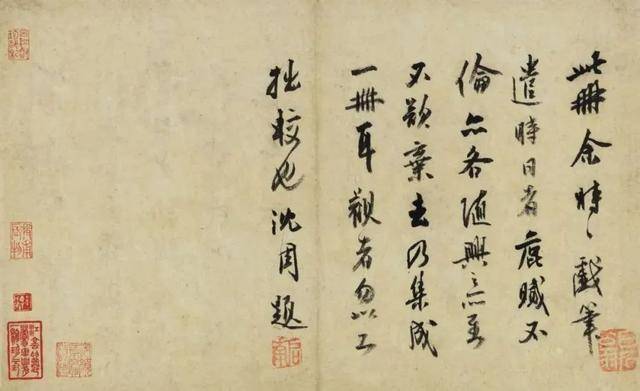 此冊余時〻戲筆
遣時日者痕賊不
倫亦各隨興之所至
不欲棄去乃集成
一冊耳觀者勿以工
拙較也沈周題